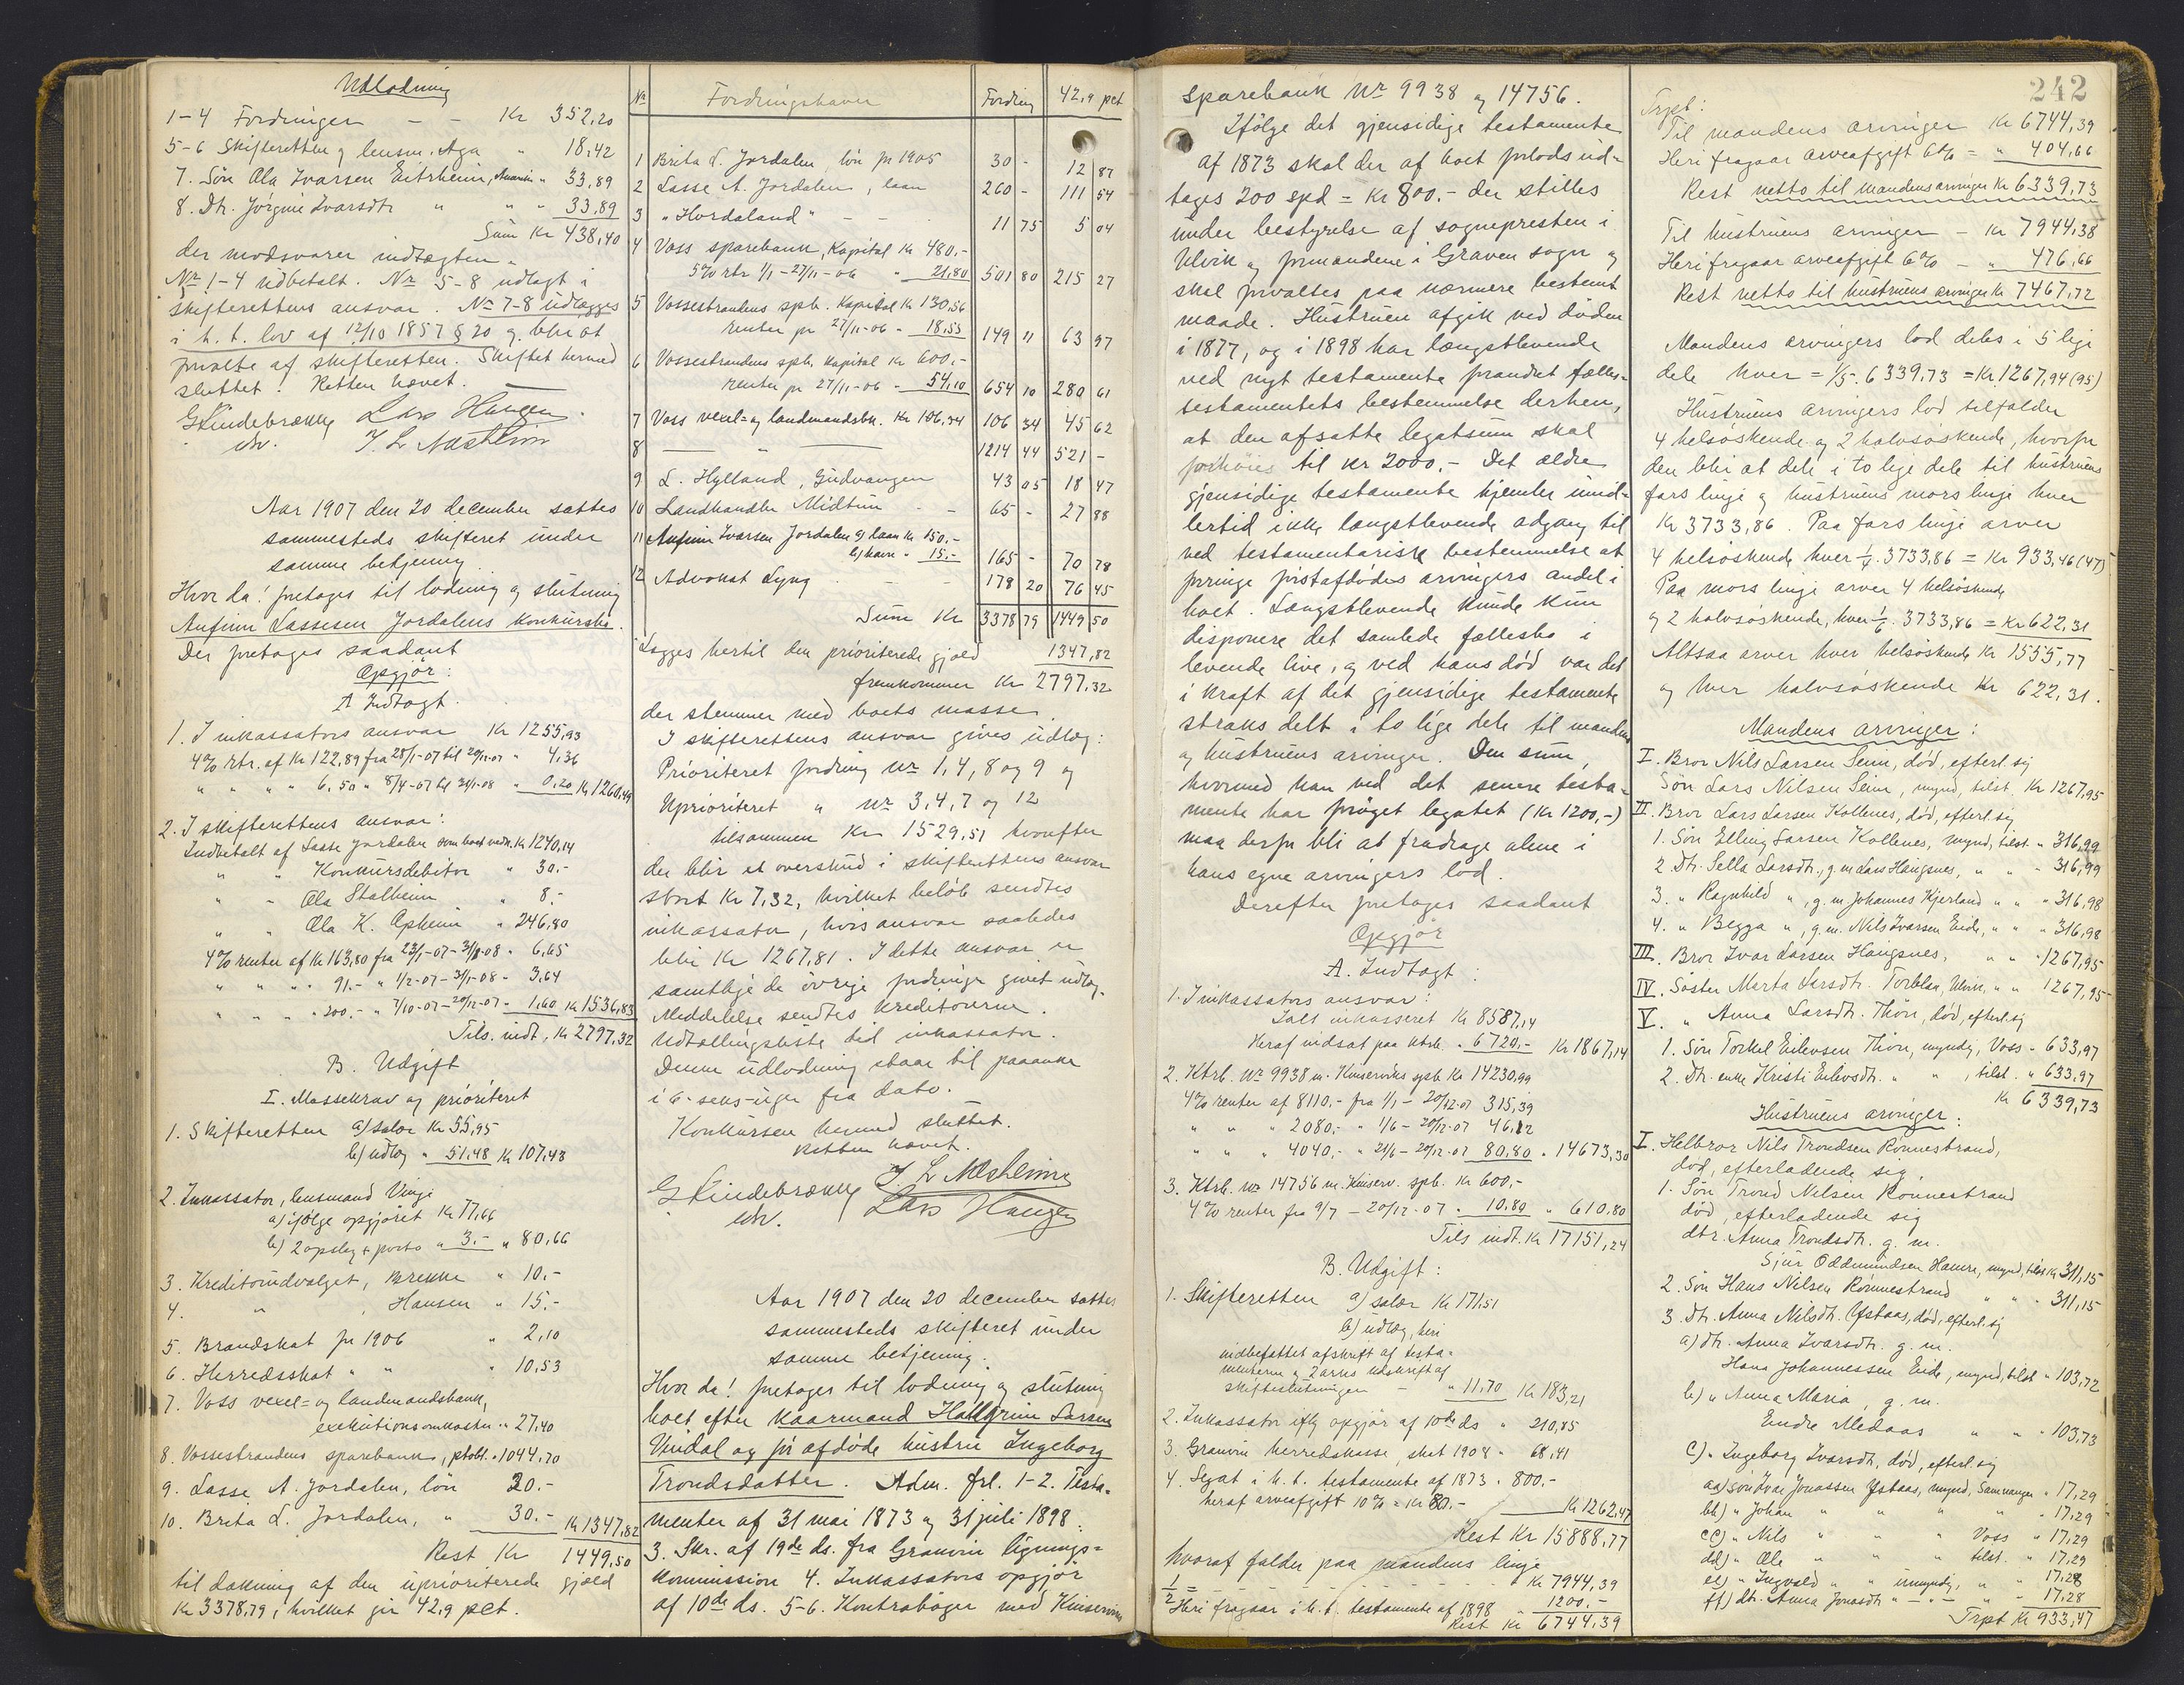 Udlodning
1-4 Fordringer - - Kr 352,20
5-6 Skifteretten og lensm. Aga " 18,42
7. Søn Ola Ivarsen Eitrheim, Amerika " 33,89
8. Dtr. Jørgine Ivarsdtr " " " 33,89
Sum Kr 438,40
der modsvarer indtægten.
Nr 1-4 udbetalt. Nr 5-8 udlagt i
skifterettens ansvar. Nr 7-8 udlægges
i h. t. lov af 12/10 1857 § 20 og blir at
forvalte af skifteretten. Skiftet hermed
sluttet. Retten hævet.
G Kindebrækky Lars Haugen
cstr. T. L Næsheim
Aar 1907 den 20 december sattes
sammesteds skifteret under
samme betjening.
Hvor da! foretages til lodning og slutning
Anfinn Lassesen Jordalens konkursbo.
Der foretages saadant
Opgjør:
A Indtægt.
1. I inkassators ansvar Kr 1255,93
4% rtr. af Kr 122,89 fra 28/1-07 til 20/12-07 " 4,36
" " " " 6,50 " 8/4-07 til 31/1-08 " 0,20 Kr 1260,49
2. I skifterettens ansvar:
Indbetalt af Lasse Jordalen som boet vedr. Kr 1240,14
" " Konkursdebitor " 30.-
" " Ola Stalheim " 8.-
" " Ola K. Opheim " 246,80
4% renter af Kr 163,80 fra 23/1-07 - 31/1-08 " 6,65
" " " " 91.- " 1/2-07 - 31/1-08 " 3,64
" " " " 200.- " 7/10-07 - 20/12-07 " 1,60 Kr 1536,83
Tils. indt. Kr 2797,32
B. Udgift
I. Massekrav og prioriteret
1. Skifteretten a) salær Kr 55,95
b) udlæg " 51,48 Kr 107,43
2. Inkassator, lensmand Vinje
a) ifølge opgjøret Kr 77,66
b) 2 opslag + porto " 3.- " 80,66
3. Kreditorudvalget, Brekke " 10.-
4. " , Hansen " 15.-
5. Brandskat for 1906 " 2,10
6. Herredsskat " " " 10,53
7. Voss vexel- og landmandsbank,
exekutionsomkostn. " 27,40
8. Vossestrandens sparebank, ptobl. " 1044,70
9. Lasse A. Jordalen, løn 20.-
10. Brita L. Jordalen, " 30.- Kr 1347,82
Rest Kr 1449,50
til dækning af den uprioriterede gjæld
Kr 3378,79, hvilket gir 42,9 pct.
No Fordringshaver Fordring 42,9 pct
1 Brita L. Jordalen, løn for 1905 30 - 12 87
2 Lasse A. Jordalen, laan 260 - 111 54
3 "Hordaland" - - 11 75 5 04
4 Voss sparebank, Kapital Kr 480.-
5% rtr 1/1-27/11-06 " 21,80 501 80 215 27
5 Vossestrandens spb. Kapital Kr 130,56
renter for 27/11-06 " 18,55 149 11 63 97
6 Vossestrandens spb. Kapital Kr 600.-
renter for 27/11-06 " 54,10 654 10 280 61
7 Voss vexel- og landmandsbk. Kr 106,34 106 34 45 62
8 — " — 1214 44 521 -
9 L. Hylland, Gudvangen 43 05 18 47
10 Landhandler Midtun - - 65 - 27 88
11 Anfinn Ivarsen Jordalen a) laan Kr 150.-
b) havre " 15.- 165 - 70 78
12 Advokat Lyng - - 178 20 76 45
Sum Kr 3378 79 1449 50
Lægges hertil den prioriterede gjæld 1347,82
fremkommer Kr 2797,32
der stemmer med boets masse.
I skifterettens ansvar gives udlæg:
Prioriteret fordring Nr 1, 4, 8 og 9 og
Uprioriteret " Nr 3, 4, 7 og 12
tilsammen Kr 1529,51 hvorefter
der blir et overskud i skifterettens ansvar
stort Kr 7,32, hvilket beløb sendtes
inkassator, hvis ansvar saaledes
blir Kr 1267,81. I dette ansvar er
samtlige de øvrige fordringer givet udlæg.
Meddelelse sendtes kreditorerne.
Udtællingsliste til inkassator.
Denne udlodning staar til paaanke
i 6-seks-uger fra dato.
Konkursen hermed sluttet.
Retten hævet.
G Kindebrækky T. L Næsheim
cstr. Lars Haugen
Aar 1907 den 20 december sattes
sammesteds skifteret under
samme betjening.
Hvor da! foretages til lodning og slutning
boet efter kaarmand Hallgrim Larsen
Vindal og før afdøde hustru Ingeborg
Trondsdatter. Adm. frl. 1-2. Testa-
menter af 31 mai 1873 og 31 juli 1898.
3. Skr. af 19de ds. fra Granvin lignings-
kommission 4. Inkassators opgjør
af 10de ds. 5-6. Kontrabøger med Kinservik
sparebank Nr 9938 og 14756.
Ifølge det gjensidige testamente
af 1873 skal der af boet forlods ud-
tages 200 spd = Kr 800.- der stilles
under bestyrelse af sognepresten i
Ulvik og formændene i Graven sogn og
skal forvaltes paa nærmere bestemt
maade. Hustruen afgik ved døden
i 1877, og i 1898 har længstlevende
ved nyt testamente forandret fælles-
testamentets bestemmelse derhen,
at den afsatte legatsum skal
forhøies til Kr 2000.- Det ældre
gjensidige testamente hjemler imid-
lertid ikke længstlevende adgang til
ved testamentarisk bestemmelse at
forringe førstafdødes arvingers andel i
boet. Længstlevende kunde kun
disponere det samlede fællesbo i
levende live, og ved hans død var det
i kraft af det gjensidige testamente
straks delt i to lige dele til mandens
og hustruens arvinger. Den sum,
hvormed han ved det senere testa-
mente har forøget legatet (Kr 1200,-)
maa derfor bli at fradrage alene i
hans egne arvingers lod.
Derefter foretages saadant
Opgjør
A. Indtægt:
1. I inkassators ansvar:
Ialt inkasseret Kr 8587,14
Heraf indsat paa ktrb. " 6720.- Kr 1867,14
2. Ktrb. Nr 9938 m. Kinserviks spb. Kr 14230,99
4% renter af 8110.- fra 1/1 - 20/12-07 315,39
" " " 2080,- " 1/6 - 20/12-07 46,12
" " " 4040,- " 21/6 - 20/12-07 80,80 " 14673,30
3. Ktrb. Nr 14756 m. Kinserv. spb. Kr 600,-
4% renter fra 9/7 - 20/12-07 " 10,80 " 610,80
Tils indt. Kr 17151,24
B. Udgift:
1. Skifteretten a) salær Kr 171,51
b) udlæg, heri
indbefattet afskrift af testa-
menterne og 2 arks udskrift af
skifteslutningen - " 11,70 Kr 183,21
2. Inkassator iflg opgjør af 10de ds " 210,85
3. Granvin herredskasse, skat 1907 " 68,41
4. Legat i h. t. testamente af 1873 " 800.-
heraf arveafgift 10% = Kr 80.- Kr 1262,47
Rest Kr 15888,77
hvoraf falder paa mandens linje
1/2 = - - - - Kr 7944,39
Heri fragaar i h. t. testamente af 1898 " 1200.-
Rest Kr 6744,39
242
Trpt:
Til mandens arvinger Kr 6744,39
Heri fragaar arveafgift 6% = " 404,66
Rest netto til mandens arvinger Kr 6339,73
Til hustruens arvinger - Kr 7944,38
Heri fragaar arveafgift 6% - " 476,66
Rest netto til hustruens arvinger Kr 7467,72
Mandens arvingers lod deles i 5 lige
dele hver = 1/5. 6339,73 = Kr. 1267,94 (95)
Hustruens arvingers lod tilfalder
4 helsøskende og 2 halvsøskende, hvorfor
den blir at dele i to lige dele til hustruens
fars linje og hustruens mors linje hver
Kr 3733,86. Paa fars linje arver
4 helsøskende hver 1/4. 3733,86 = Kr 933,46 (47)
Paa mors linje arver 4 helsøskende
og 2 halvsøskende, hver 1/6. 3733,86 = Kr 622,31
Altsaa arver hver helsøskende Kr 1555,77
og hver halvsøskende Kr 622,31.
Mandens arvinger:
I. Bror Nils Larsen Seim, død, efterl. sig
Søn Lars Nilsen Seim, mynd, tilst. Kr 1267,95
II. Bror Lars Larsen Kollenes, død, efterl. sig
1. Søn Elling Larsen Kollenes, mynd, tilst. " 316,99
2. Dtr. Sella Larsdtr., g. m. Lars Haugsnes, " " " 316,99
3. " Ragnhild ", g. m. Johannes Kjerland " " " 316,98
4. " Begga ", g. m. Nils Ivarsen Eide, " " " 316,98
III. Bror Ivar Larsen Haugsnes, " " " 1267,95
IV. Søster Marta Larsdtr. Torblaa, Ulvik, " " 1267,95
V. " Anna Larsdtr. Thøn, død, efterl. sig
1. Søn Torkel Eilevsen Thøn, myndig, Voss " 633,97
2. Dtr. enke Kristi Eilevsdtr. " " , tilst. " 633,97
Kr 6339,73
Hustruens arvinger:
I. Helbror Nils Trondsen Rønnestrand,
død, efterladende sig
1. Søn Trond Nilsen Rønnestrand
død, efterladende sig
dtr. Anna Trondsdtr. g. m.
Sjur Oddmundsen Hamre, mynd, tilst Kr 311,15
2. Søn Hans Nilsen Rønnestrand " " " 311,15
3. Dtr. Anna Nilsdtr. Ystaas, død, efterl. sig
a) dtr. Anna Ivarsdtr. g. m.
Hans Johannessen Eide, mynd, tilst " 103,72
b) " Anna Maria, g. m.
Endre Medaas " " " 103,73
c) " Ingeborg Ivarsdtr, død, efterl. sig
aa) søn Ivar Jonassen Ystaas, mynd, Samnanger " 17,29
bb) " Johan " " " " " 17,29
cc) " Nils " " " Voss " 17,29
dd) " Ole " " " tilst. " 17,29
ee) " Ingvald " " umyndig, " " 17,28
ff) dtr. Anna Jonasdtr " — " — " " 17,28
Trpt Kr 933,47